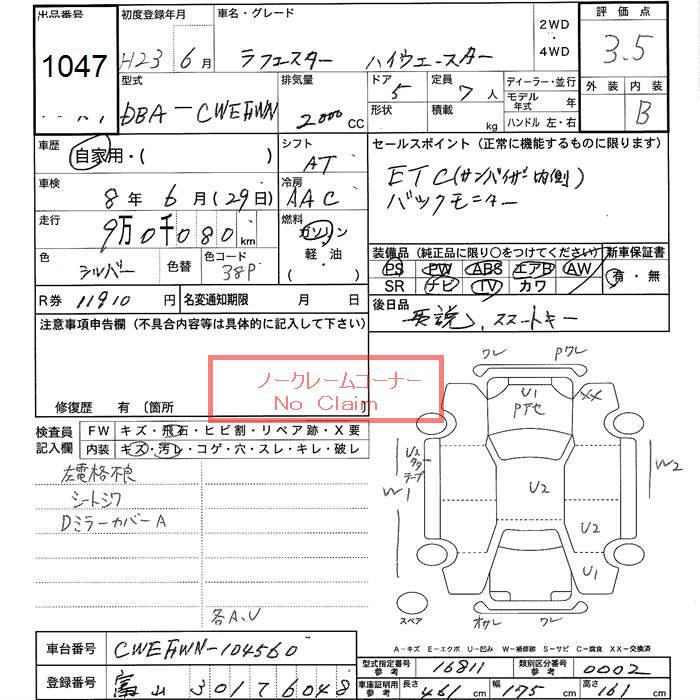 出品番号
1047
初度登録年月
H23年6月
車名・グレード
ラフェスター ハイウェースター
2WD
4WD
評価点
3.5
外装 内装
B
型式
DBA-CWEFWN
排気量
2000CC
ドア
5
形状
定員
7人
積載
kg
ディーラー・並行
モデル年式 年
ハンドル 左・右
車歴
自家用・( )
シフト
AT
セールスポイント (正常に機能するものに限ります)
ETC(サンバイザー内側)
バックモニター
車検
8年6月(29日)
冷房
AAC
走行
9万0千080km
燃料
ガソリン
軽・油
( )
色
シルバー
色替
色コード
38P
装備品 (純正品に限り○をつけてください)
PS PW ABS エアB AW
SR ナビ TV カワ
新車保証書
有・無
R券 11910円
名変通知期限 月 日
後日品
取説、スマートキー
注意事項申告欄 (不具合内容等は具体的に記入して下さい)
ノークレームコーナー
No Claim
修復歴 有 〔箇所
検査員
記入欄
FW キズ・飛石・ヒビ割・リペア跡・X要
内装 キズ・汚レ・コゲ・穴・スレ・キレ・破レ
左電格不良
シートシワ
DミラーカバーA
各A、U
ワレ Pワレ
U1
Pアセ
XX
U2
タッチ
W1
U2
W2
U2
U1
スペア
オサレ ワレ
A-キズ E-エクボ U-凹み W-補修跡 S-サビ C-腐食 XX-交換済
車台番号
CWEFWN-104560
登録番号
富山 301 7 6048
型式指定番号
参考
16811
類別区分番号
参考
0002
車庫証明用
参考
長さ 461cm 幅 175cm 高さ 161cm